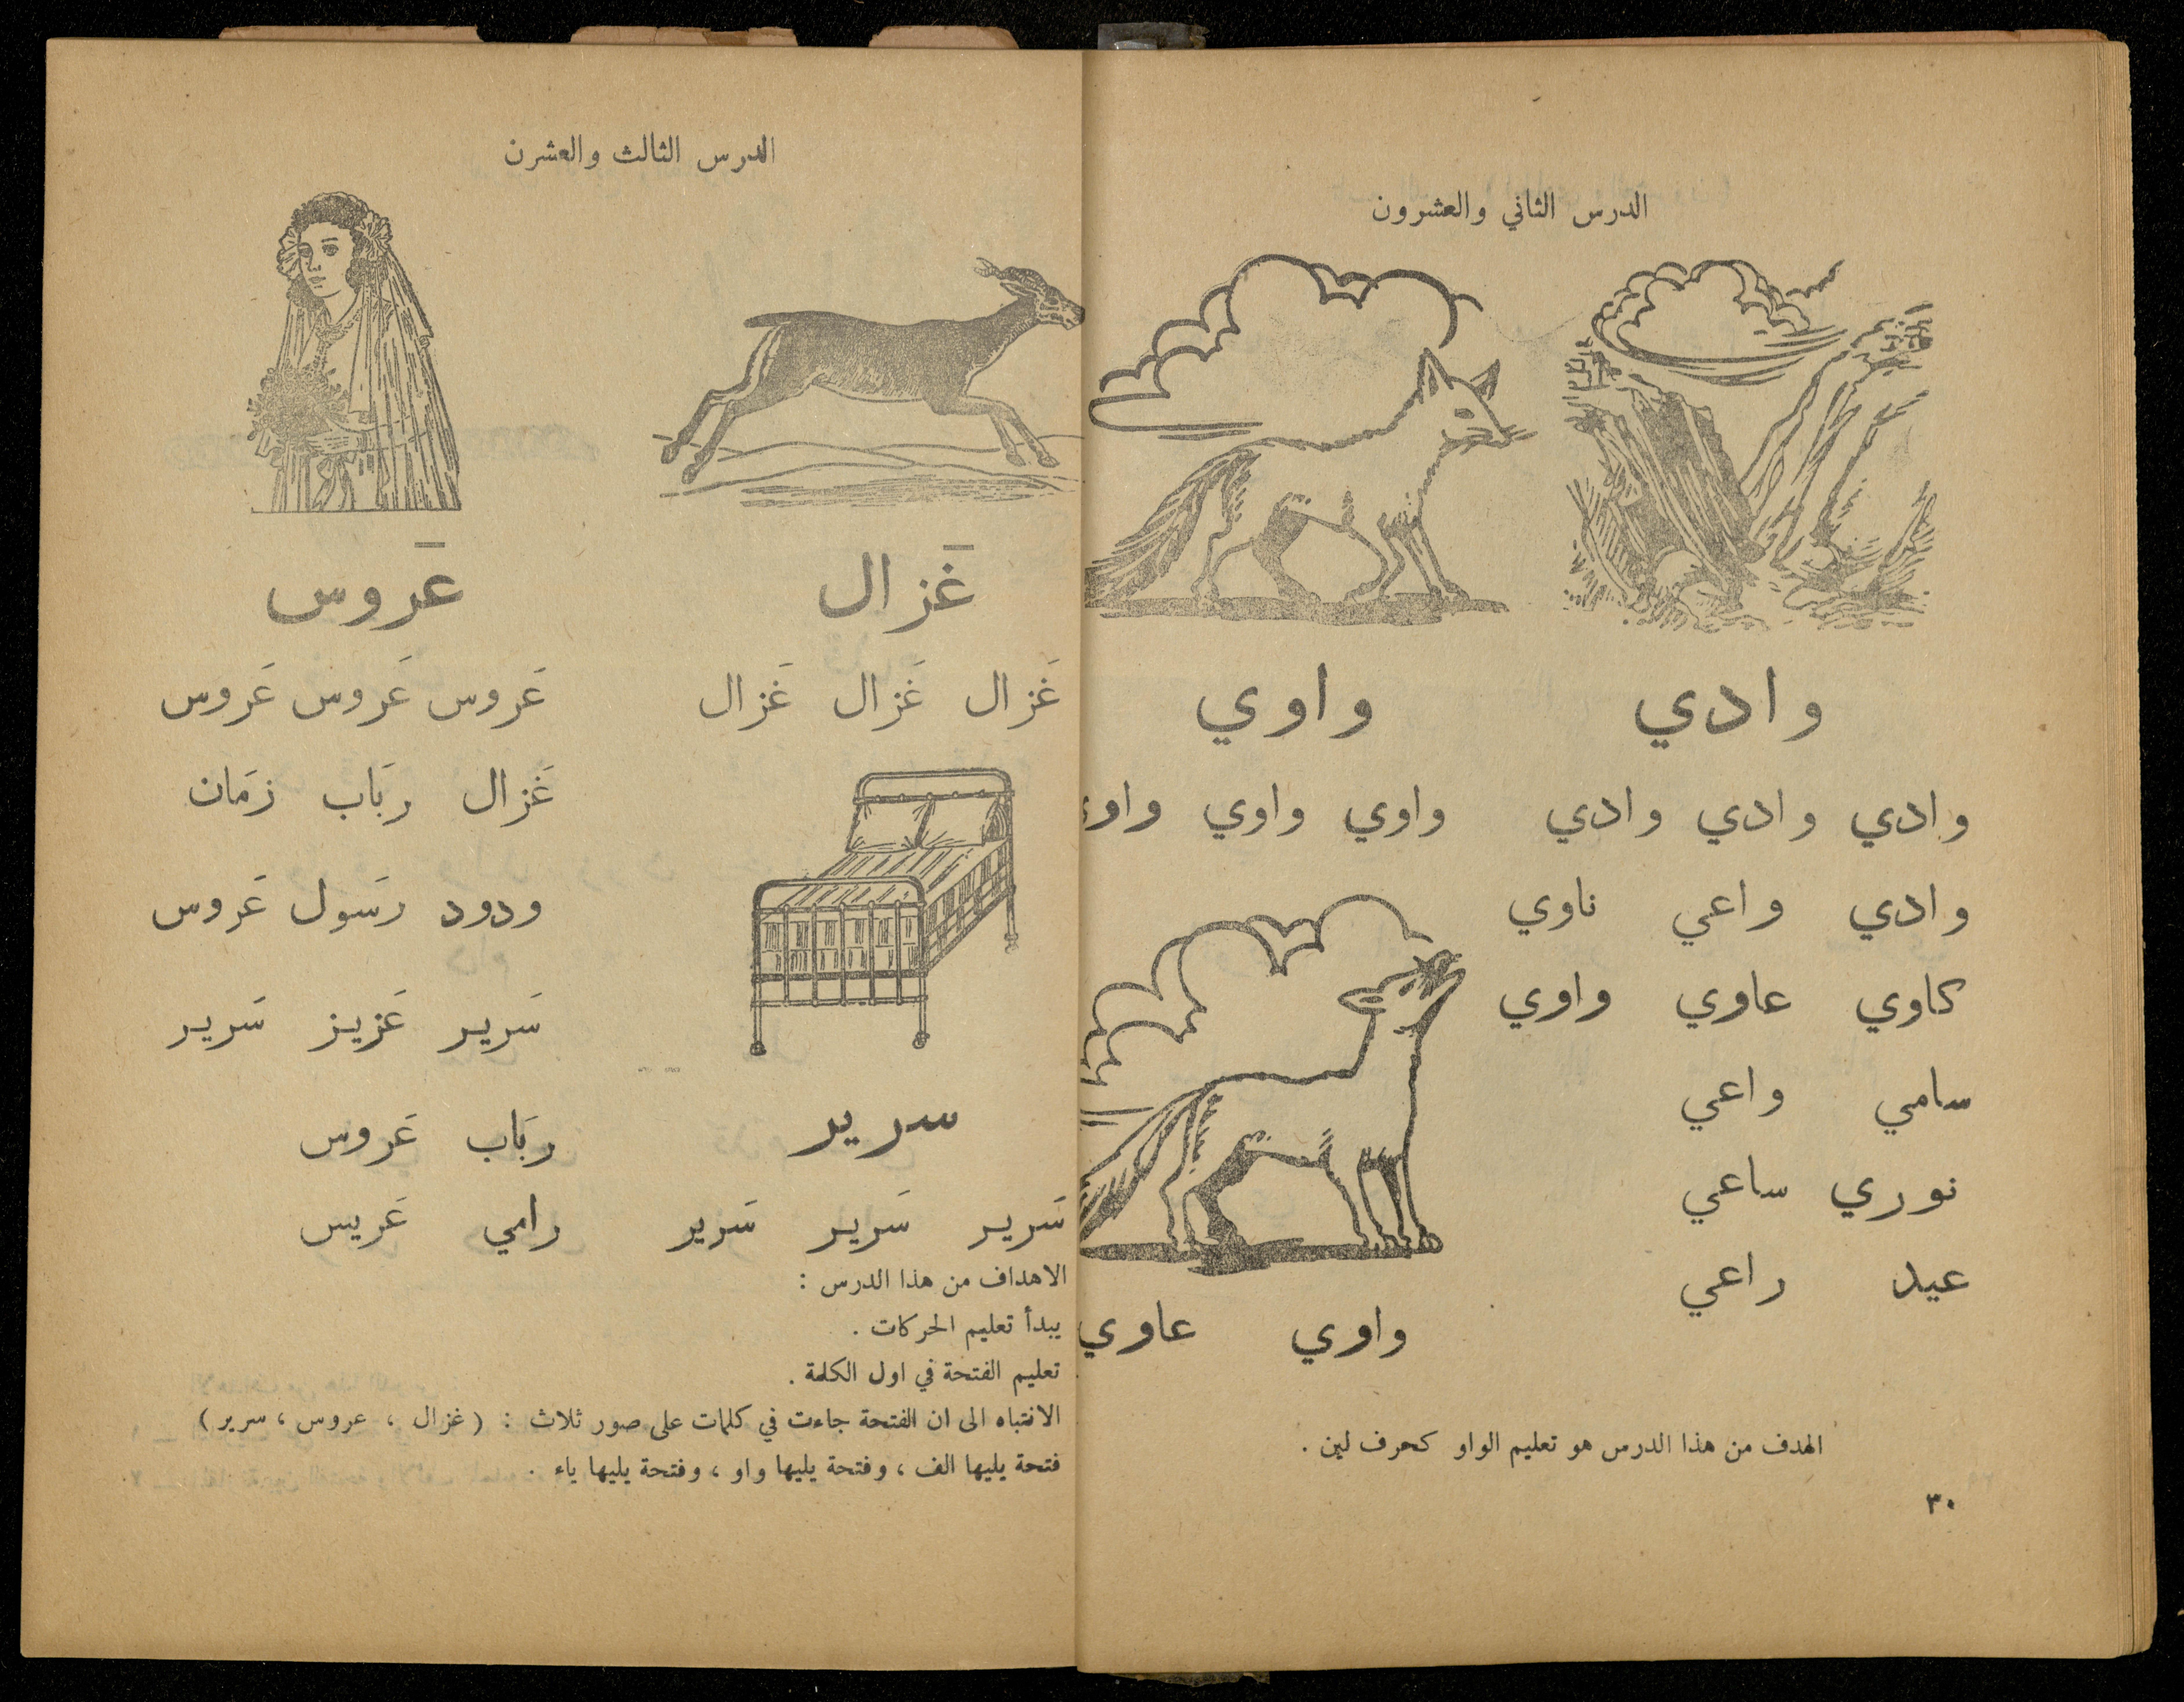 الدرس الثاني والعشرون
وادي واوي
وادي وادي وادي واوي واوي
وادي واعي ناوي
كاوي عاوي واوي
سامي واعي
نوري ساعي
عيد راعي
واوي عاوي
الهدف من هذا الدرس هو تعليم الواو كحرف لين .
٣٠
الدرس الثالث والعشرن
غَزال عَروس
غَزال غَزال غَزال
عَروس عَروس عَروس
غَزال ربَاب زمَان
ودود رسَول عَروس
سَرير عَزيز سَرير
سرير
ربَاب عَروس
سَرير سَرير سَرير
رامي عَريس
الاهداف من هذا الدرس :
يبدأ تعليم الحركات .
تعليم الفتحة في اول الكلمة .
الانتباه الى ان الفتحة جاءت في كلمات على صور ثلاث : ( غزال ، عروس ، سرير )
فتحة يليها الف ، وفتحة يليها واو ، وفتحة يليها ياء .